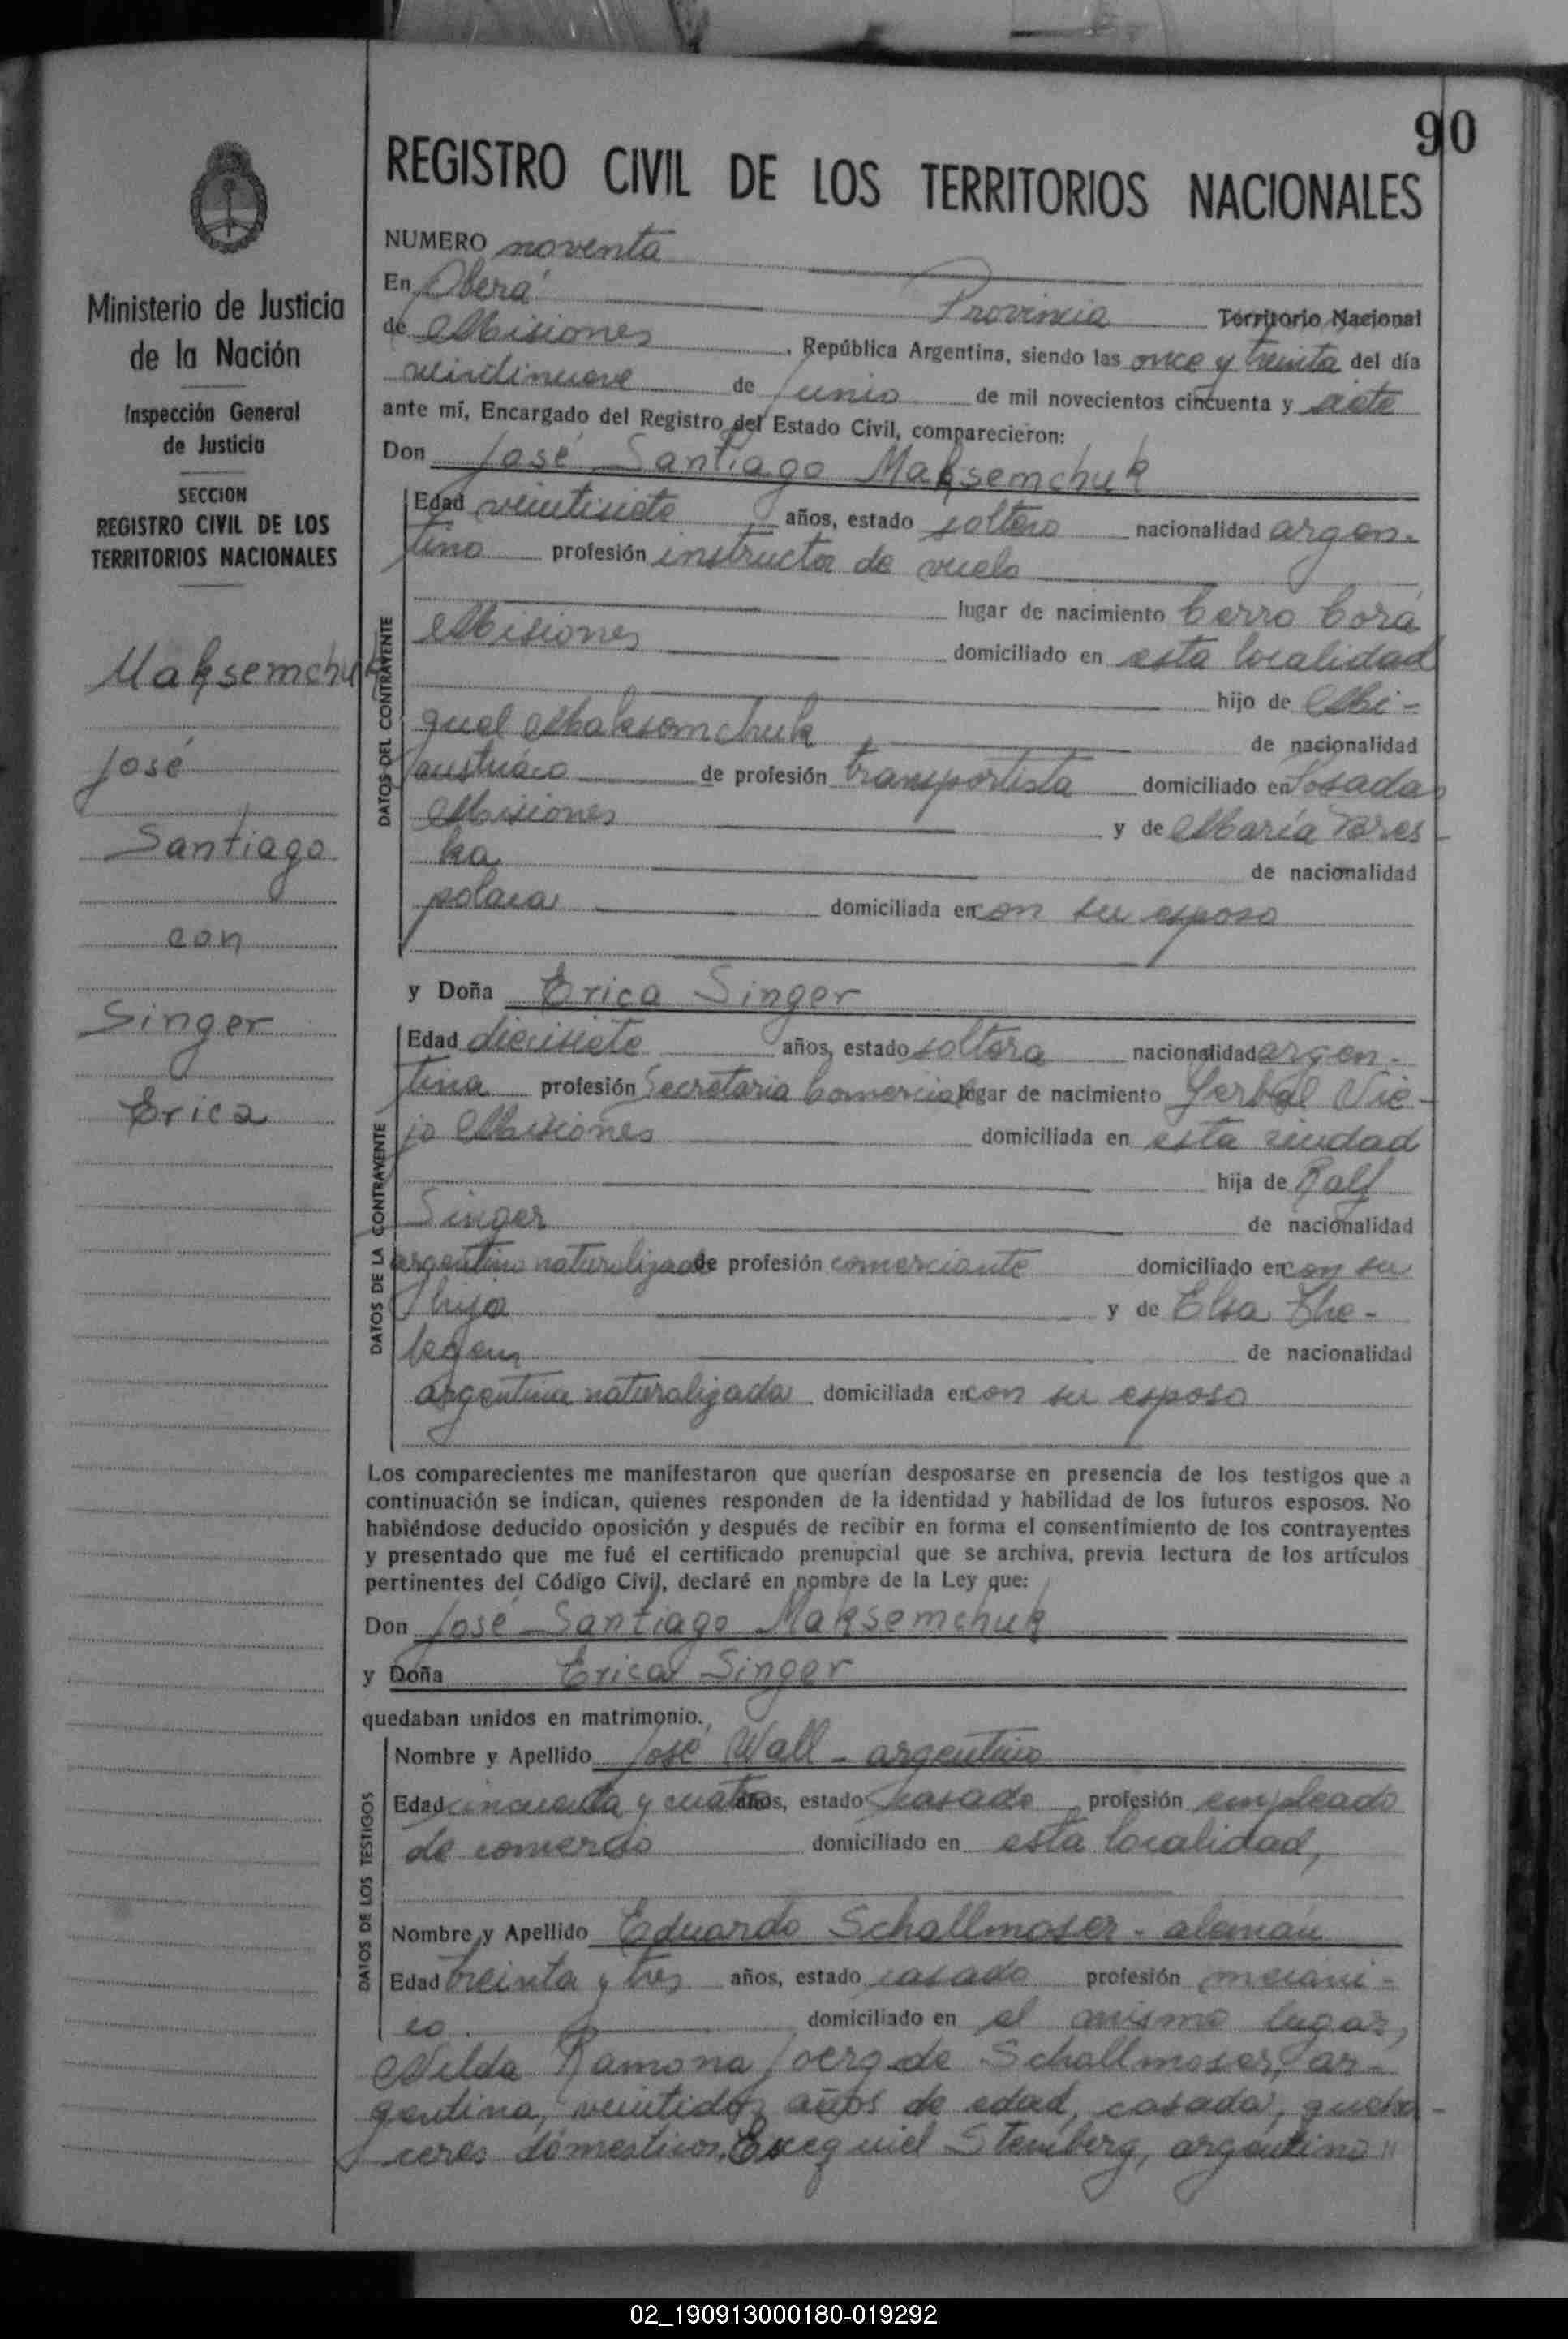 90
REGISTRO CIVIL DE LOS TERRITORIOS NACIONALES
Ministerio de Justicia
de la Nación
Inspección General
de Justicia
SECCION
REGISTRO CIVIL DE LOS
TERRITORIOS NACIONALES
Maksemchuk
José
Santiago
con
Singer
Erica
NUMERO noventa
En Oberá Provincia Territorio Nacional
de Misiones, República Argentina, siendo las once y treinta del día
veintinueve de Junio de mil novecientos cincuenta y siete
ante mí, Encargado del Registro del Estado Civil, comparecieron:
Don José Santiago Maksemchuk
DATOS DEL CONTRAYENTE
Edad veintisiete años, estado soltero nacionalidad argen-
tino profesión instructor de vuelo
lugar de nacimiento Cerro Corá
Misiones domiciliado en esta localidad
hijo de Mi-
guel Maksemchuk de nacionalidad
austríaco de profesión transportista domiciliado en Posadas
Misiones y de María
ka de nacionalidad
polaca domiciliada en con su esposo
y Doña Erica Singer
DATOS DE LA CONTRAYENTE
Edad diecisiete años, estado soltera nacionalidad argen-
tina profesión Secretaria Comercial lugar de nacimiento Yerbal Vie-
jo Misiones domiciliada en esta ciudad
hija de Ralf
Singer de nacionalidad
argentino naturalizado de profesión comerciante domiciliado en con su
hija y de Elsa The-
de nacionalidad
argentina naturalizada domiciliada en con su esposo
Los comparecientes me manifestaron que querían desposarse en presencia de los testigos que a
continuación se indican, quienes responden de la identidad y habilidad de los futuros esposos. No
habiéndose deducido oposición y después de recibir en forma el consentimiento de los contrayentes
y presentado que me fué el certificado prenupcial que se archiva, previa lectura de los artículos
pertinentes del Código Civil, declaré en nombre de la Ley que:
Don José Santiago Maksemchuk
y Doña Erica Singer
quedaban unidos en matrimonio.
DATOS DE LOS TESTIGOS
Nombre y Apellido José Wall - argentino
Edad cincuenta y cuatro años, estado casado profesión empleado
de comercio domiciliado en esta localidad,
Nombre y Apellido Eduardo Schallmoser - alemán
Edad treinta y tres años, estado casado profesión mecáni-
co. domiciliado en el mismo lugar,
Nilda Ramona Joerg de Schallmoser, ar-
gentina, veintidos años de edad, casada, queha-
ceres domesticos, Exequiel Stemberg, argentino "
02_190913000180-019292